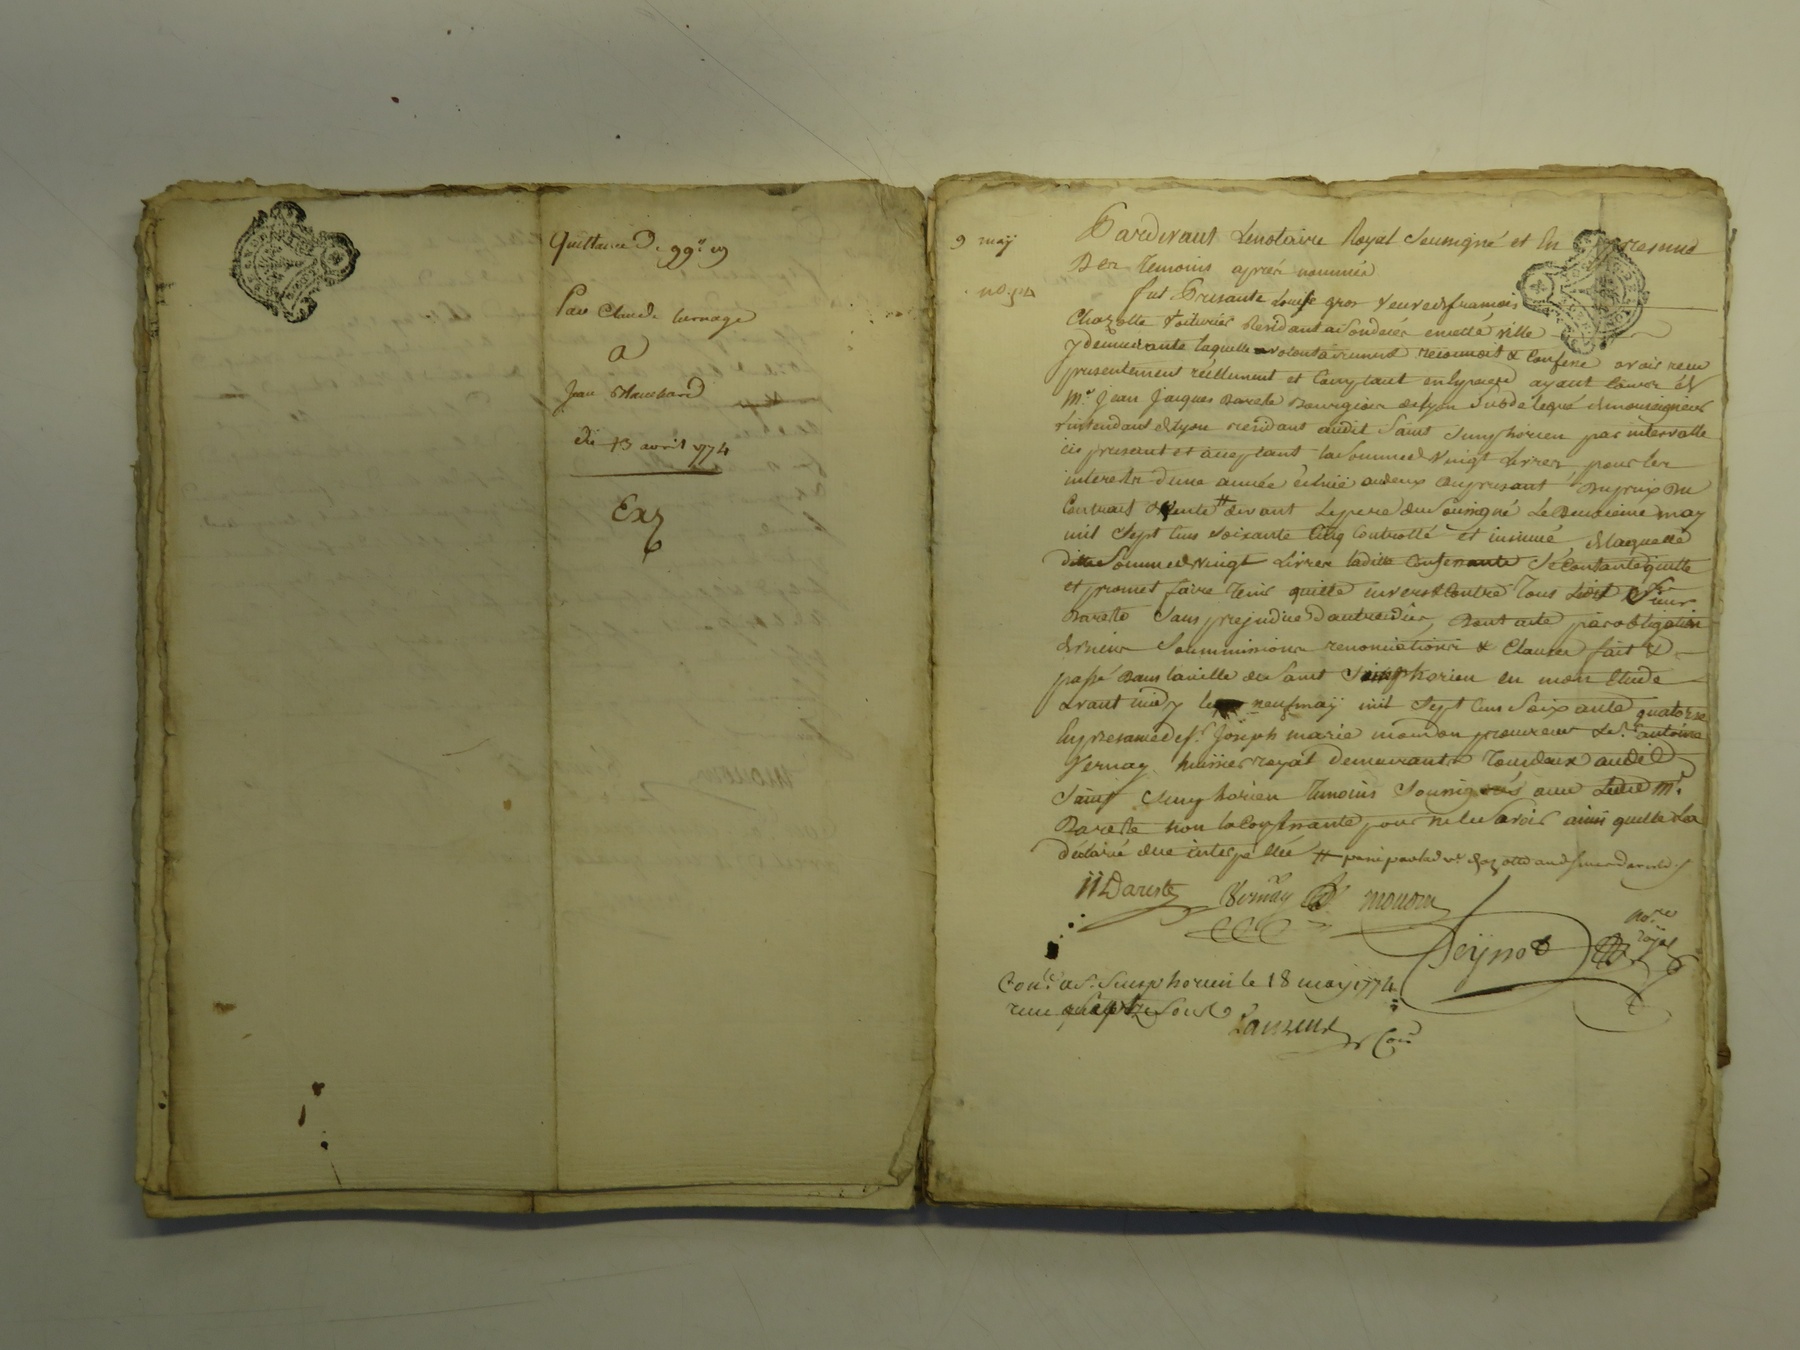 Quittance de 99# 19
Par Claude
a
Jean Blanchard
du 13 avril 1774
Ex
9 may
Pardevant Lenotaire Royal soussigné et En presence
Des temoins aprés nommés
fut Presante Louise gros veuve de françois
Chazotte voiturier Residant a en cette ville
y demeurante laquelle volontairement reconnoit & confesse avoir reçu
presentement réellement et comptant en especes ayant cours de
Mr. Jean Jacques Dareste Bourgeois de Lyon subdelegué de monseigneur
l'intendant de Lyon residant audit Saint Simphorien par intervalle
ici presant et acceptant la somme de vingt Livres, pour les
interests d'une année échüe au deux du presant Du prix Du
Contrait de vente # devant Le pere du soussigné Le Deuxieme may
mil sept cens soixante cinq controllé et insinué, de laquelle
ditte somme de vingt Livres ladite confessante s'e contante quitte
et promet faire tenir quitte envers & contre tous Ledit sieur
Dareste sans prejudice d'autre dûs, Dont acte par obligation
de biens soummissions renonciations & clauses fait &
passé Dans la ville de Saint Simphorien en mon Etude
avant midy le neuf maÿ mil sept cens soixante quatorze
En presance de sr. Joseph marie mouton procureur & sr. antoine
Vernay huissier royal demeurants tous deux audit
Saint Simphorien temoins soussignés avec Ledit Mr.
Dareste non la confessante pour ne le savoir ainsi quelle L'a
déclaré de ce interpellée # passé par lad ve. chazotte aud sieur dareste
JJ Dareste Vernay mouton
Peÿnot nore royal
Conle. a St. Simphorien le 18 may 1774
reçu sols
Laurent Con